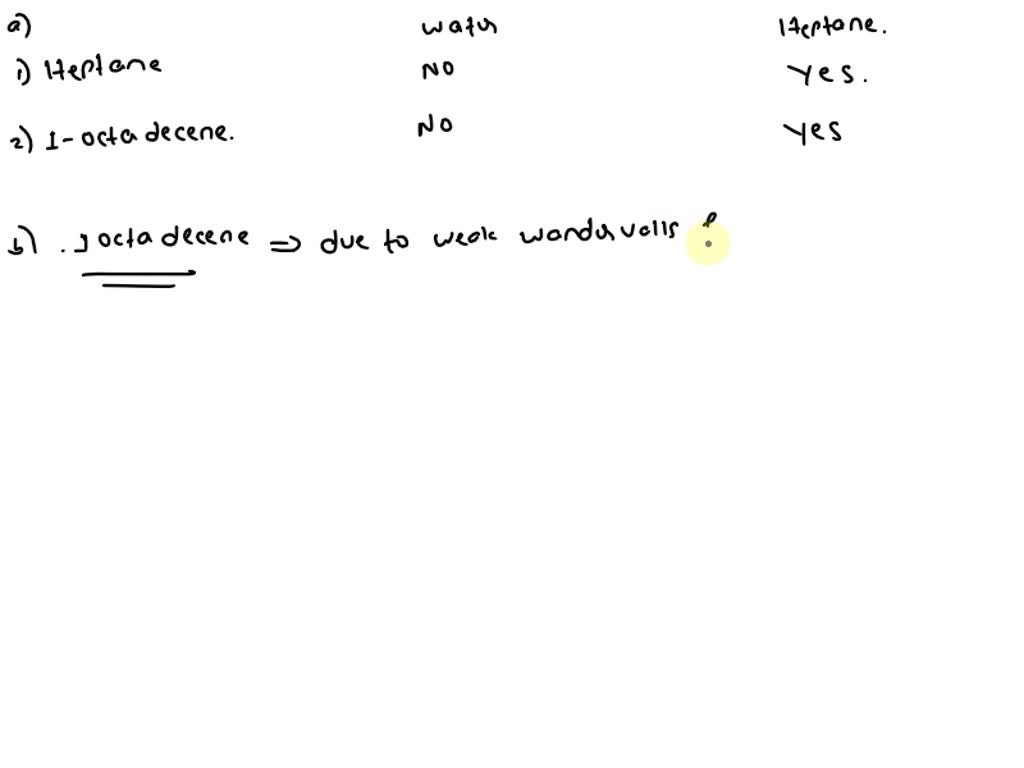 a) water Heptane.
1) Heptane NO Yes.
2) 1-octadecene. NO Yes
b) . octadecene ⇒ due to weak wandervalls